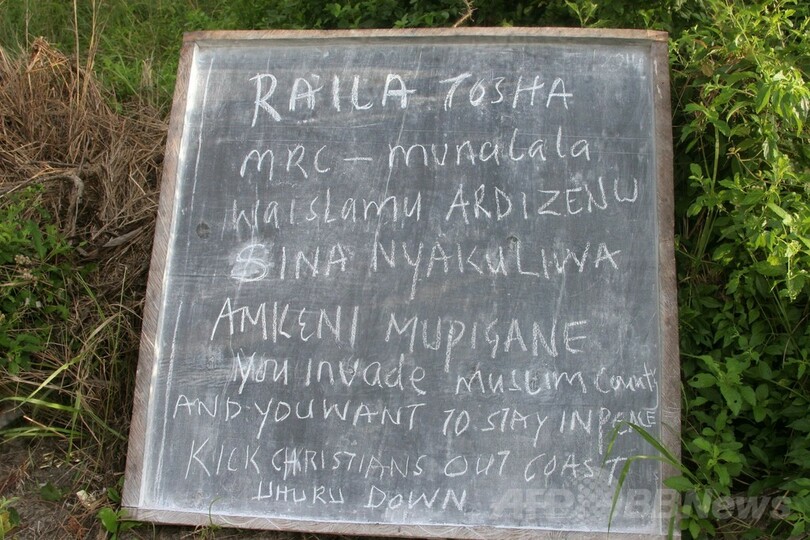 RAILA TOSHA
MRC - munalala
Waislamu ARDIZENU
SINA NYAKULIWA
AMKENI MUPIGANE
You invade muslim County
AND YOU WANT TO STAY IN PEACE
KICK CHRISTIANS OUT COAST
UHURU DOWN
AFPBBNews